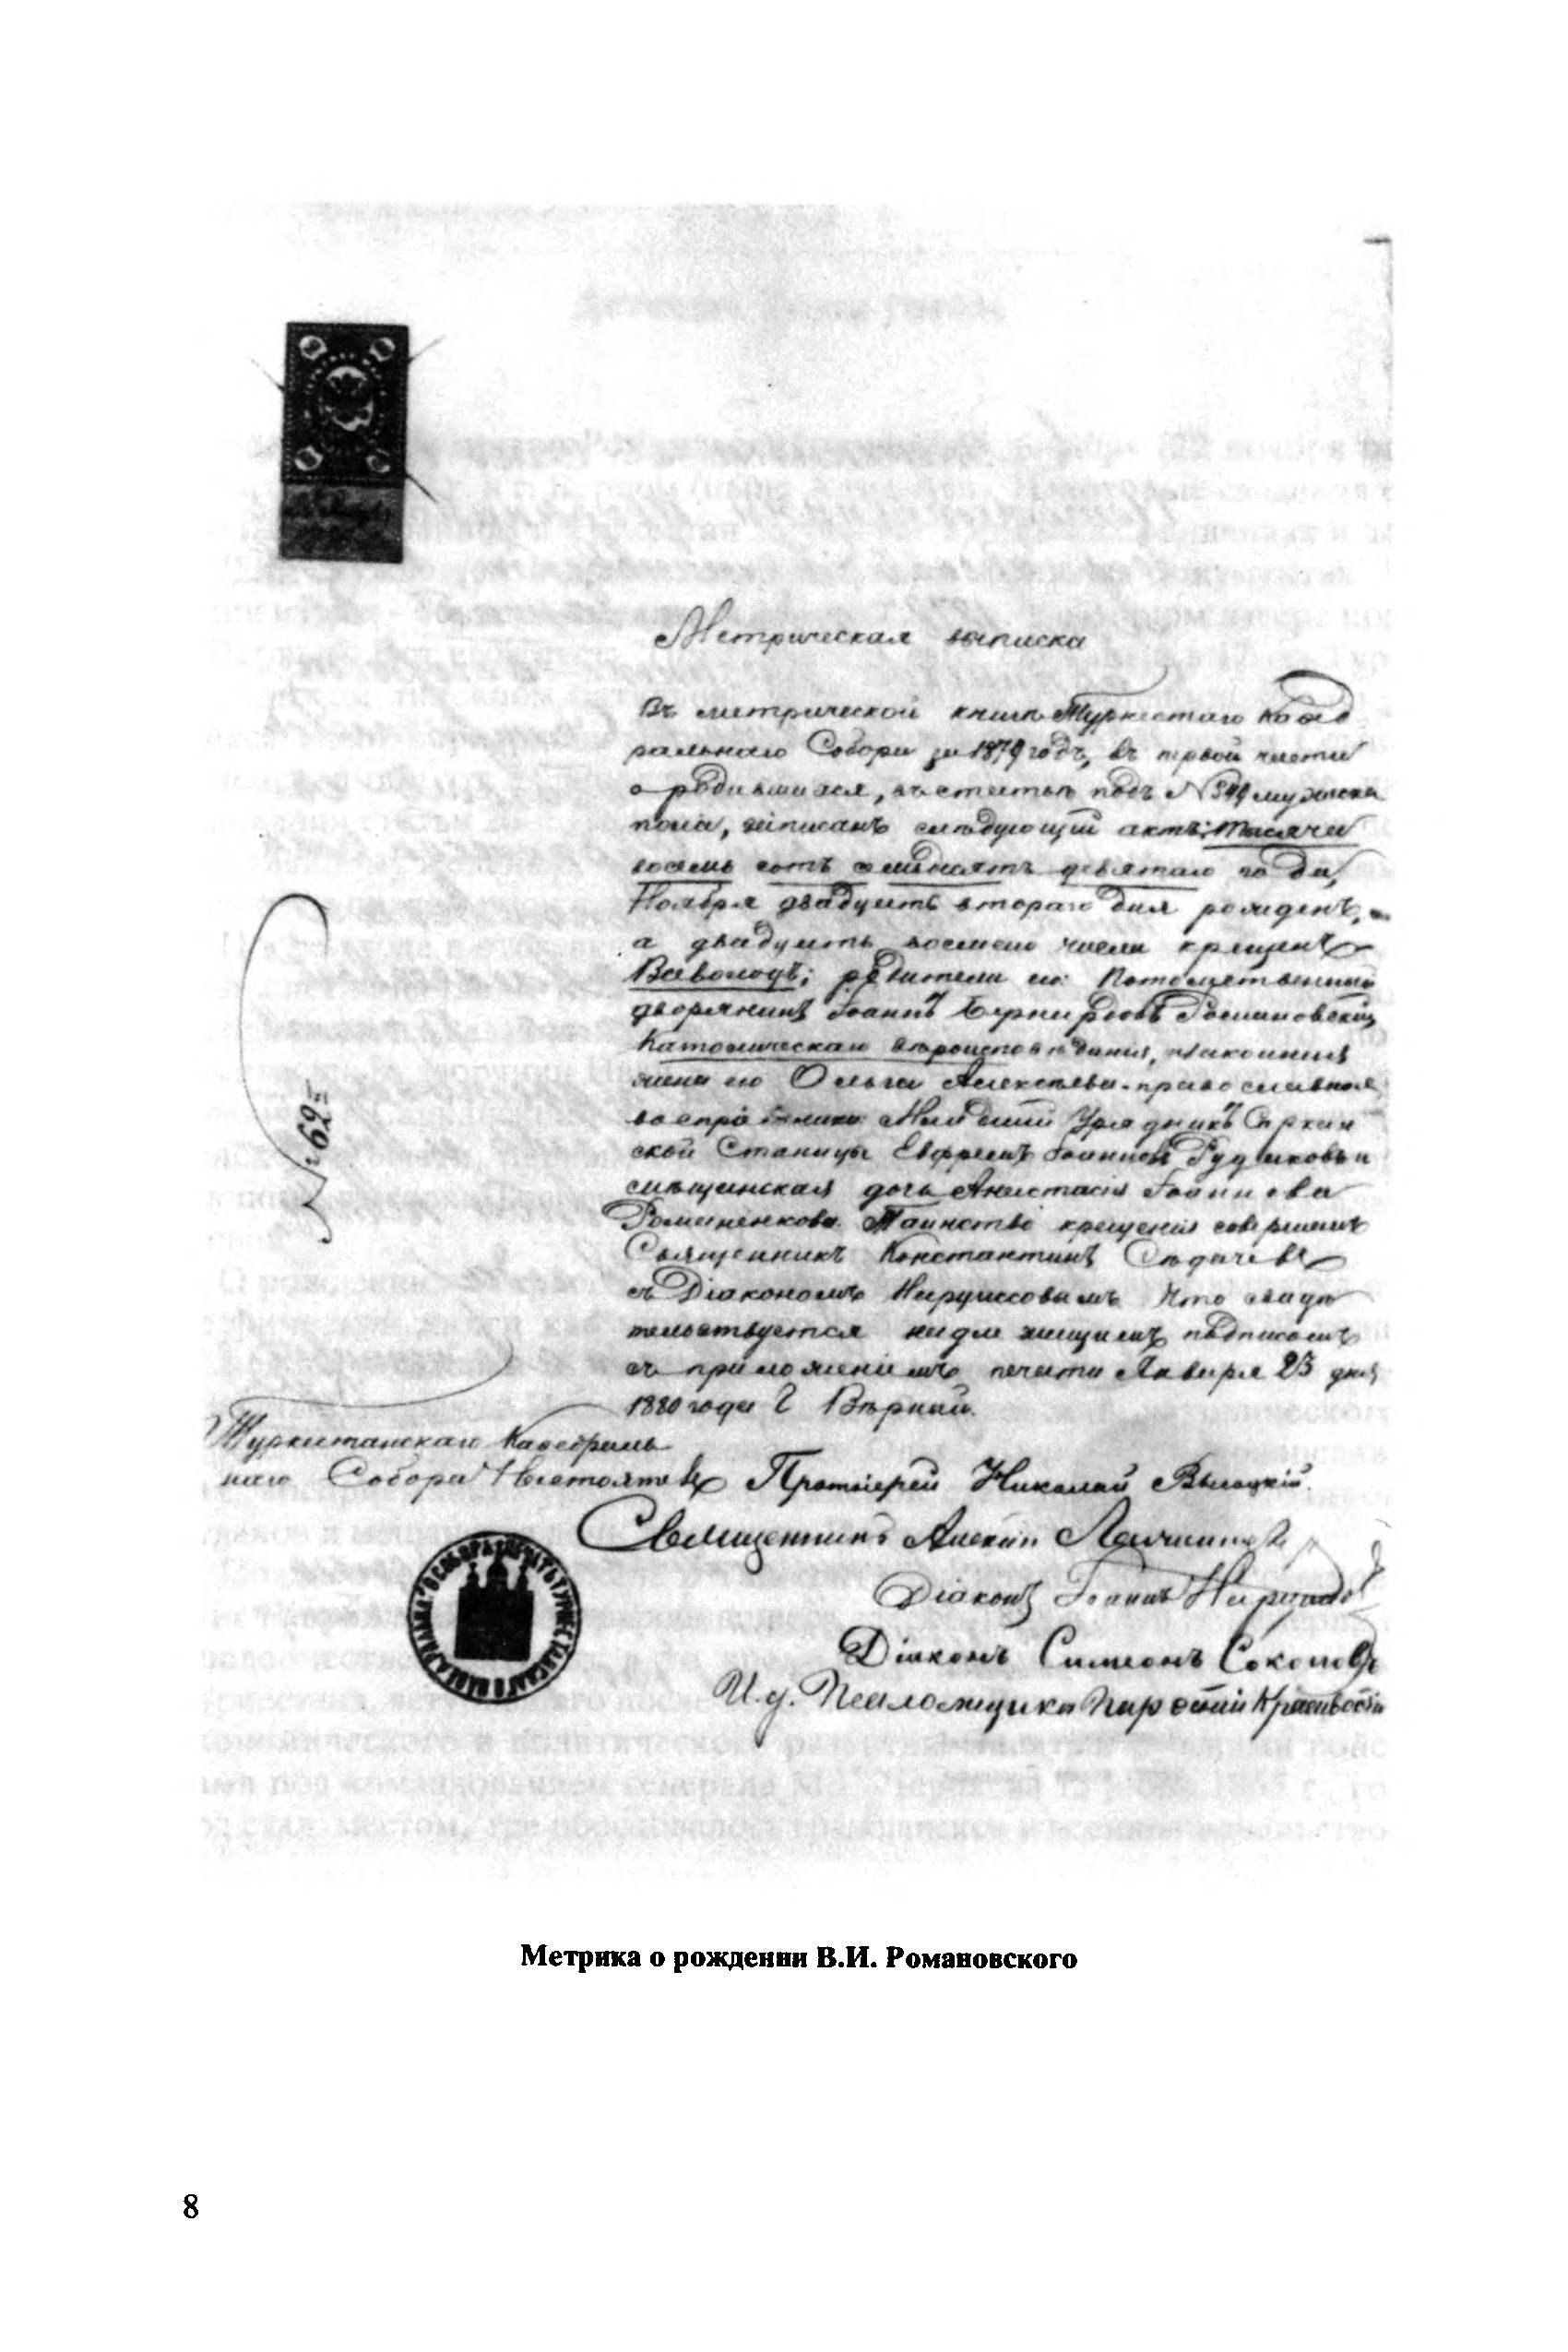 Метрическая выписка
Въ метрической книгѣ Туркестаго Каѳед
ральнаго Собора за 1879 годъ, въ первой части
о родившихся, въ статьѣ подъ № мужска
пола, записанъ слѣдующій актъ: Тысяча
восемь сотъ семьдесятъ девятаго года,
Ноября двадцать втораго дня рожденъ,
а двадцать восьмаго числа крещенъ
Всеволодъ; родители его: Потомственный
дворянинъ Іоаннъ Романовскій
Католическаго вѣроисповѣданія, и законная
жена его Ольга Алексѣева православная
воспріемники: Младшій Урядникъ
ской Станицы Ефремъ Іоанновъ Рудаковъ и
мѣщанская дочь Анастасія Іоаннова
Романенкова. Таинство крещенія совершалъ
Священникъ Константинъ
съ Діакономъ Что свидѣ
тельствуется надлежащимъ подписомъ
съ приложеніемъ печати Января 23 дня
1880 года г. Вѣрный.
№ 62
Туркестанскаго Каѳедраль
наго Собора Настоятель Протоіерей Николай Высоцкій.
Священникъ Алексій
Діаконъ Іоаннъ
Діаконъ Симеонъ Соколовъ
И. д. Псаломщика
Метрика о рождении В.И. Романовского
8